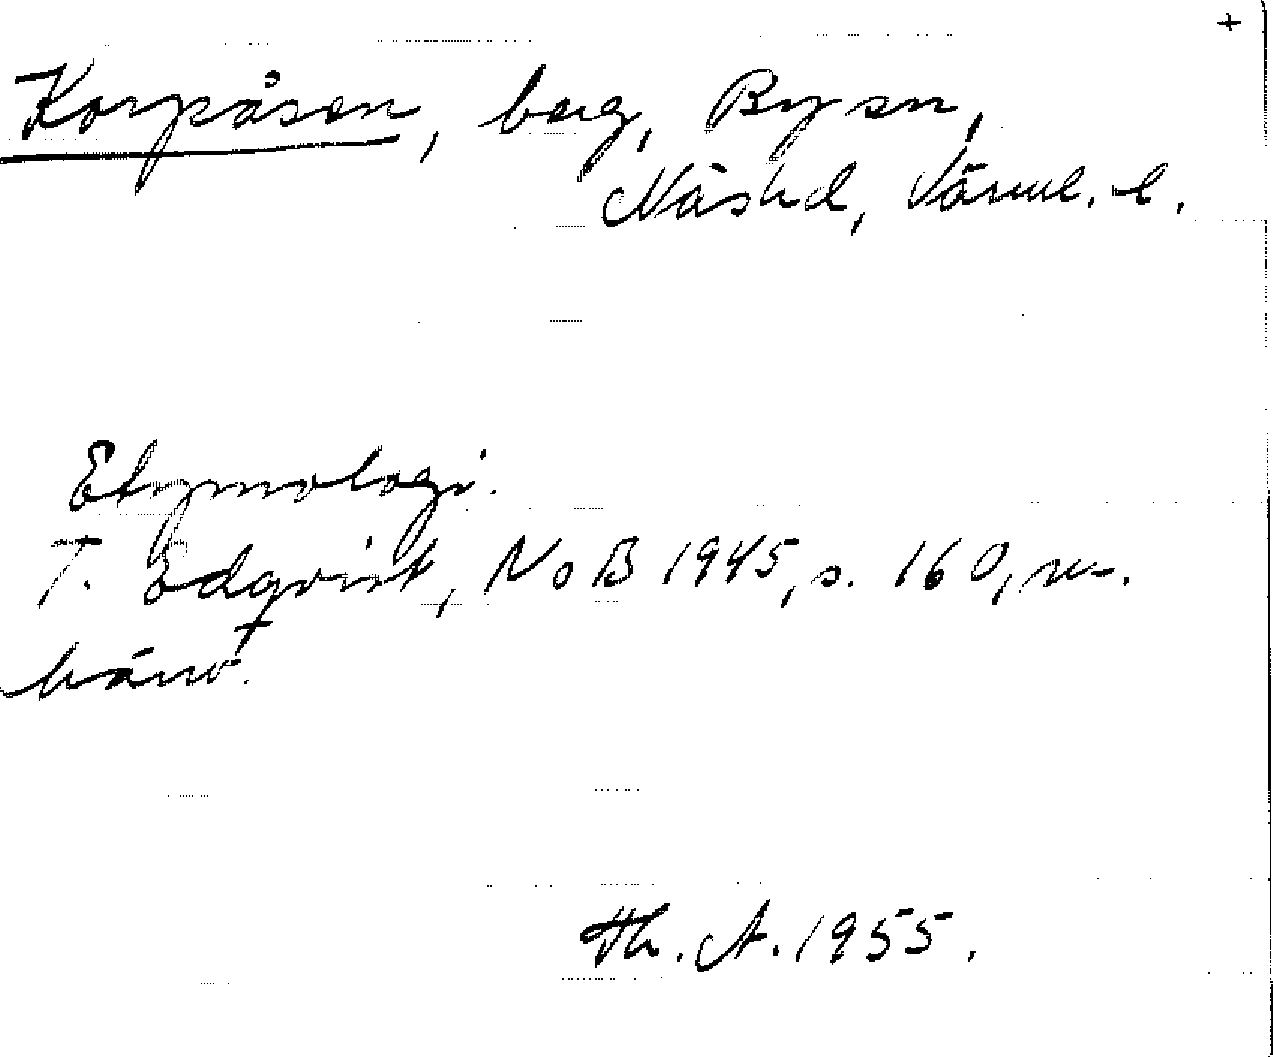 +
Korpåsen, berg, By sn,
Näshd, Värml. l.
Etymologi.
T. Edqvist, NoB 1945, s. 160, m.
hänv.
Th. A. 1955.